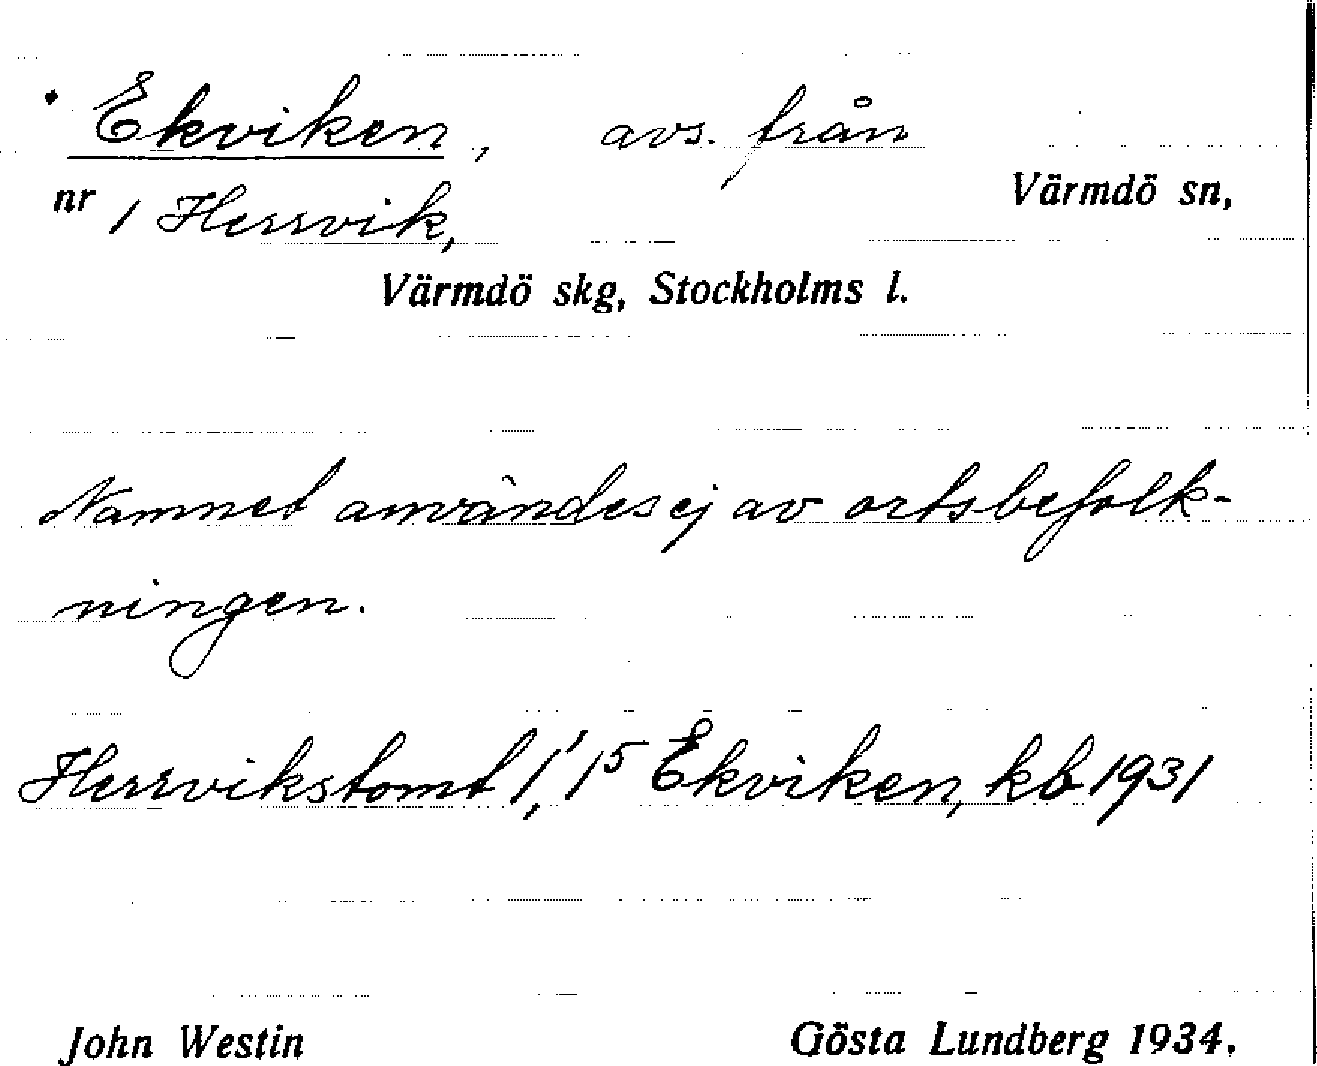 Ekviken, avs. från
nr 1 Herrvik, Värmdö sn,
Värmdö skg, Stockholms l.
Namnet användes ej av ortsbefolk-
ningen.
Herrvikstomt 1, 15 Ekviken, kb 1931
John Westin Gösta Lundberg 1934.